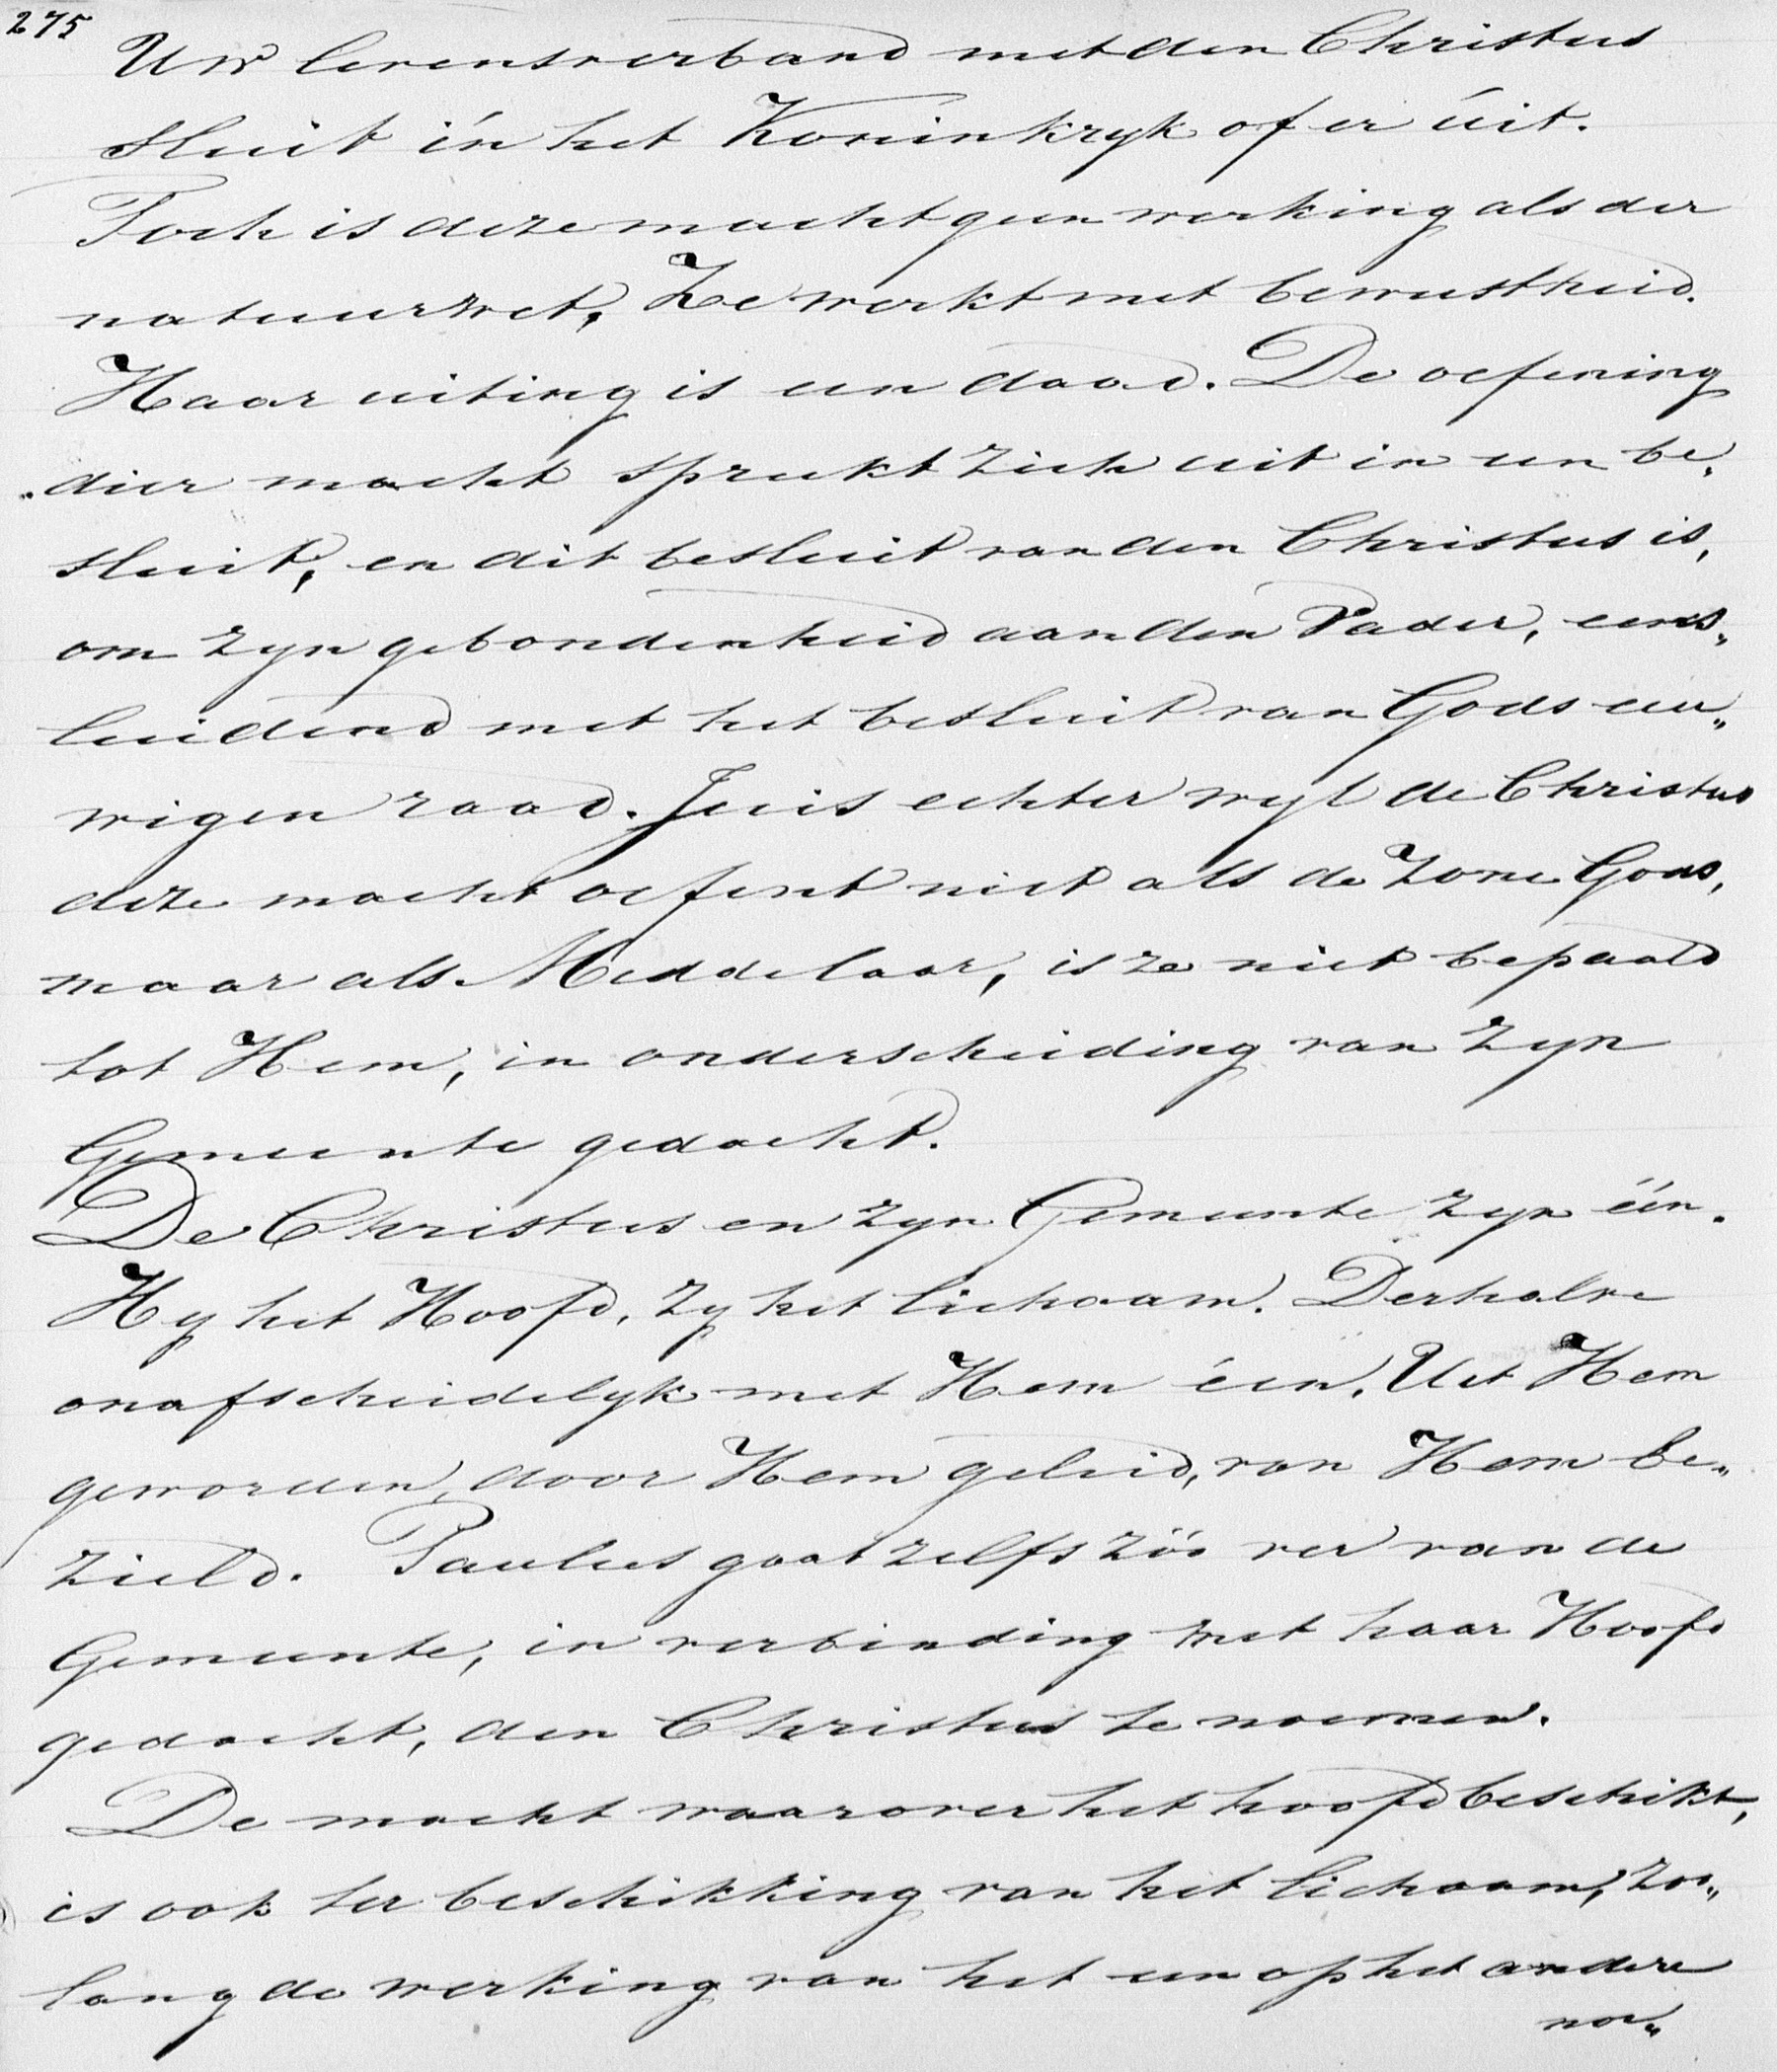 275
Uw levensverband met den Christus
sluit ín het Koninkryk of er úit.
Toch is deze macht geen werking als der
natuurwet, Ze werkt met bewustheid.
Haar uiting is een daad. De oefening
dier macht spreekt zich uit in een be„
sluit, en dit besluit van den Christus is,
om zyn gebondenheid aan den Vader, eens„
luidend met het besluit van Gods eeu„
wigen raad. Juis echter wyl de Christus
deze macht oefent niet als de Zone Gods,
maar als Meddelaar, is ze niet bepaald
tot Hem, in onderscheiding van zyn
Gemeente gedacht.
De Christus en zyn Gemeente zyn één.
Hy het Hoofd, zy het lichaam. Derhalve
onafscheidelyk met Hem één. Uit Hem
geworden, door Hem geleid, van Hem be„
zield. Paulus gaat zelfs zóó ver van de
Gemeente, in verbinding met haar Hoofd
gedacht, den Christus te noemen.
De macht waarover het hoofd beschikt,
is ook ter beschikking van het lichaam, zoo„
lang de werking van het een op het andere
noe„